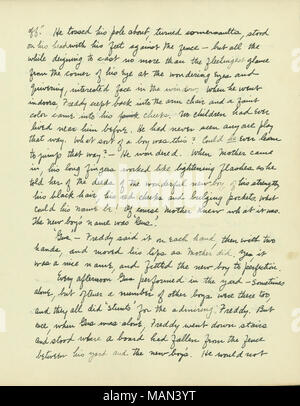 He tossed his pole about, turned somersaults, stood
on his head with his feet against the fence - but all the
while deigning to cast no more than the fleetingest glance
from the corner of his eye at the wondering eyes and
quivering, interested face in the window. When he went
indoors, Freddy crept back into the arm chair and a faint
color came into his cheeks. No children had ever
lived near him before. He had never seen any one play
that way. What sort of a boy was this? Could he ever learn
to jump that way? - He wondered. When Mother came
in, his long fingers worked like lightening flashes as he
told her of the deeds of the wonderful new boy, of his strength,
his black hair, his red cheeks and bulging pockets. What
could his name be? Of course Mother knew what it was.
The new boy's name was "Gus."
"Gus" - Freddy said it on each hand, then with two
hands and moved his lips as Mother did. Yes it
was a nice name, and fitted the new boy to perfection.
Every afternoon Gus performed in the yard - Sometimes
alone, but often a number of other boys were there too,
and they all did "stunts" for the admiring Freddy. But
once, when Gus was alone, Freddy went down stairs
and stood where a board had fallen from the fence
between his yard and the new boy's. He would not
alamy
Image ID: MAN3YT
www.alamy.com